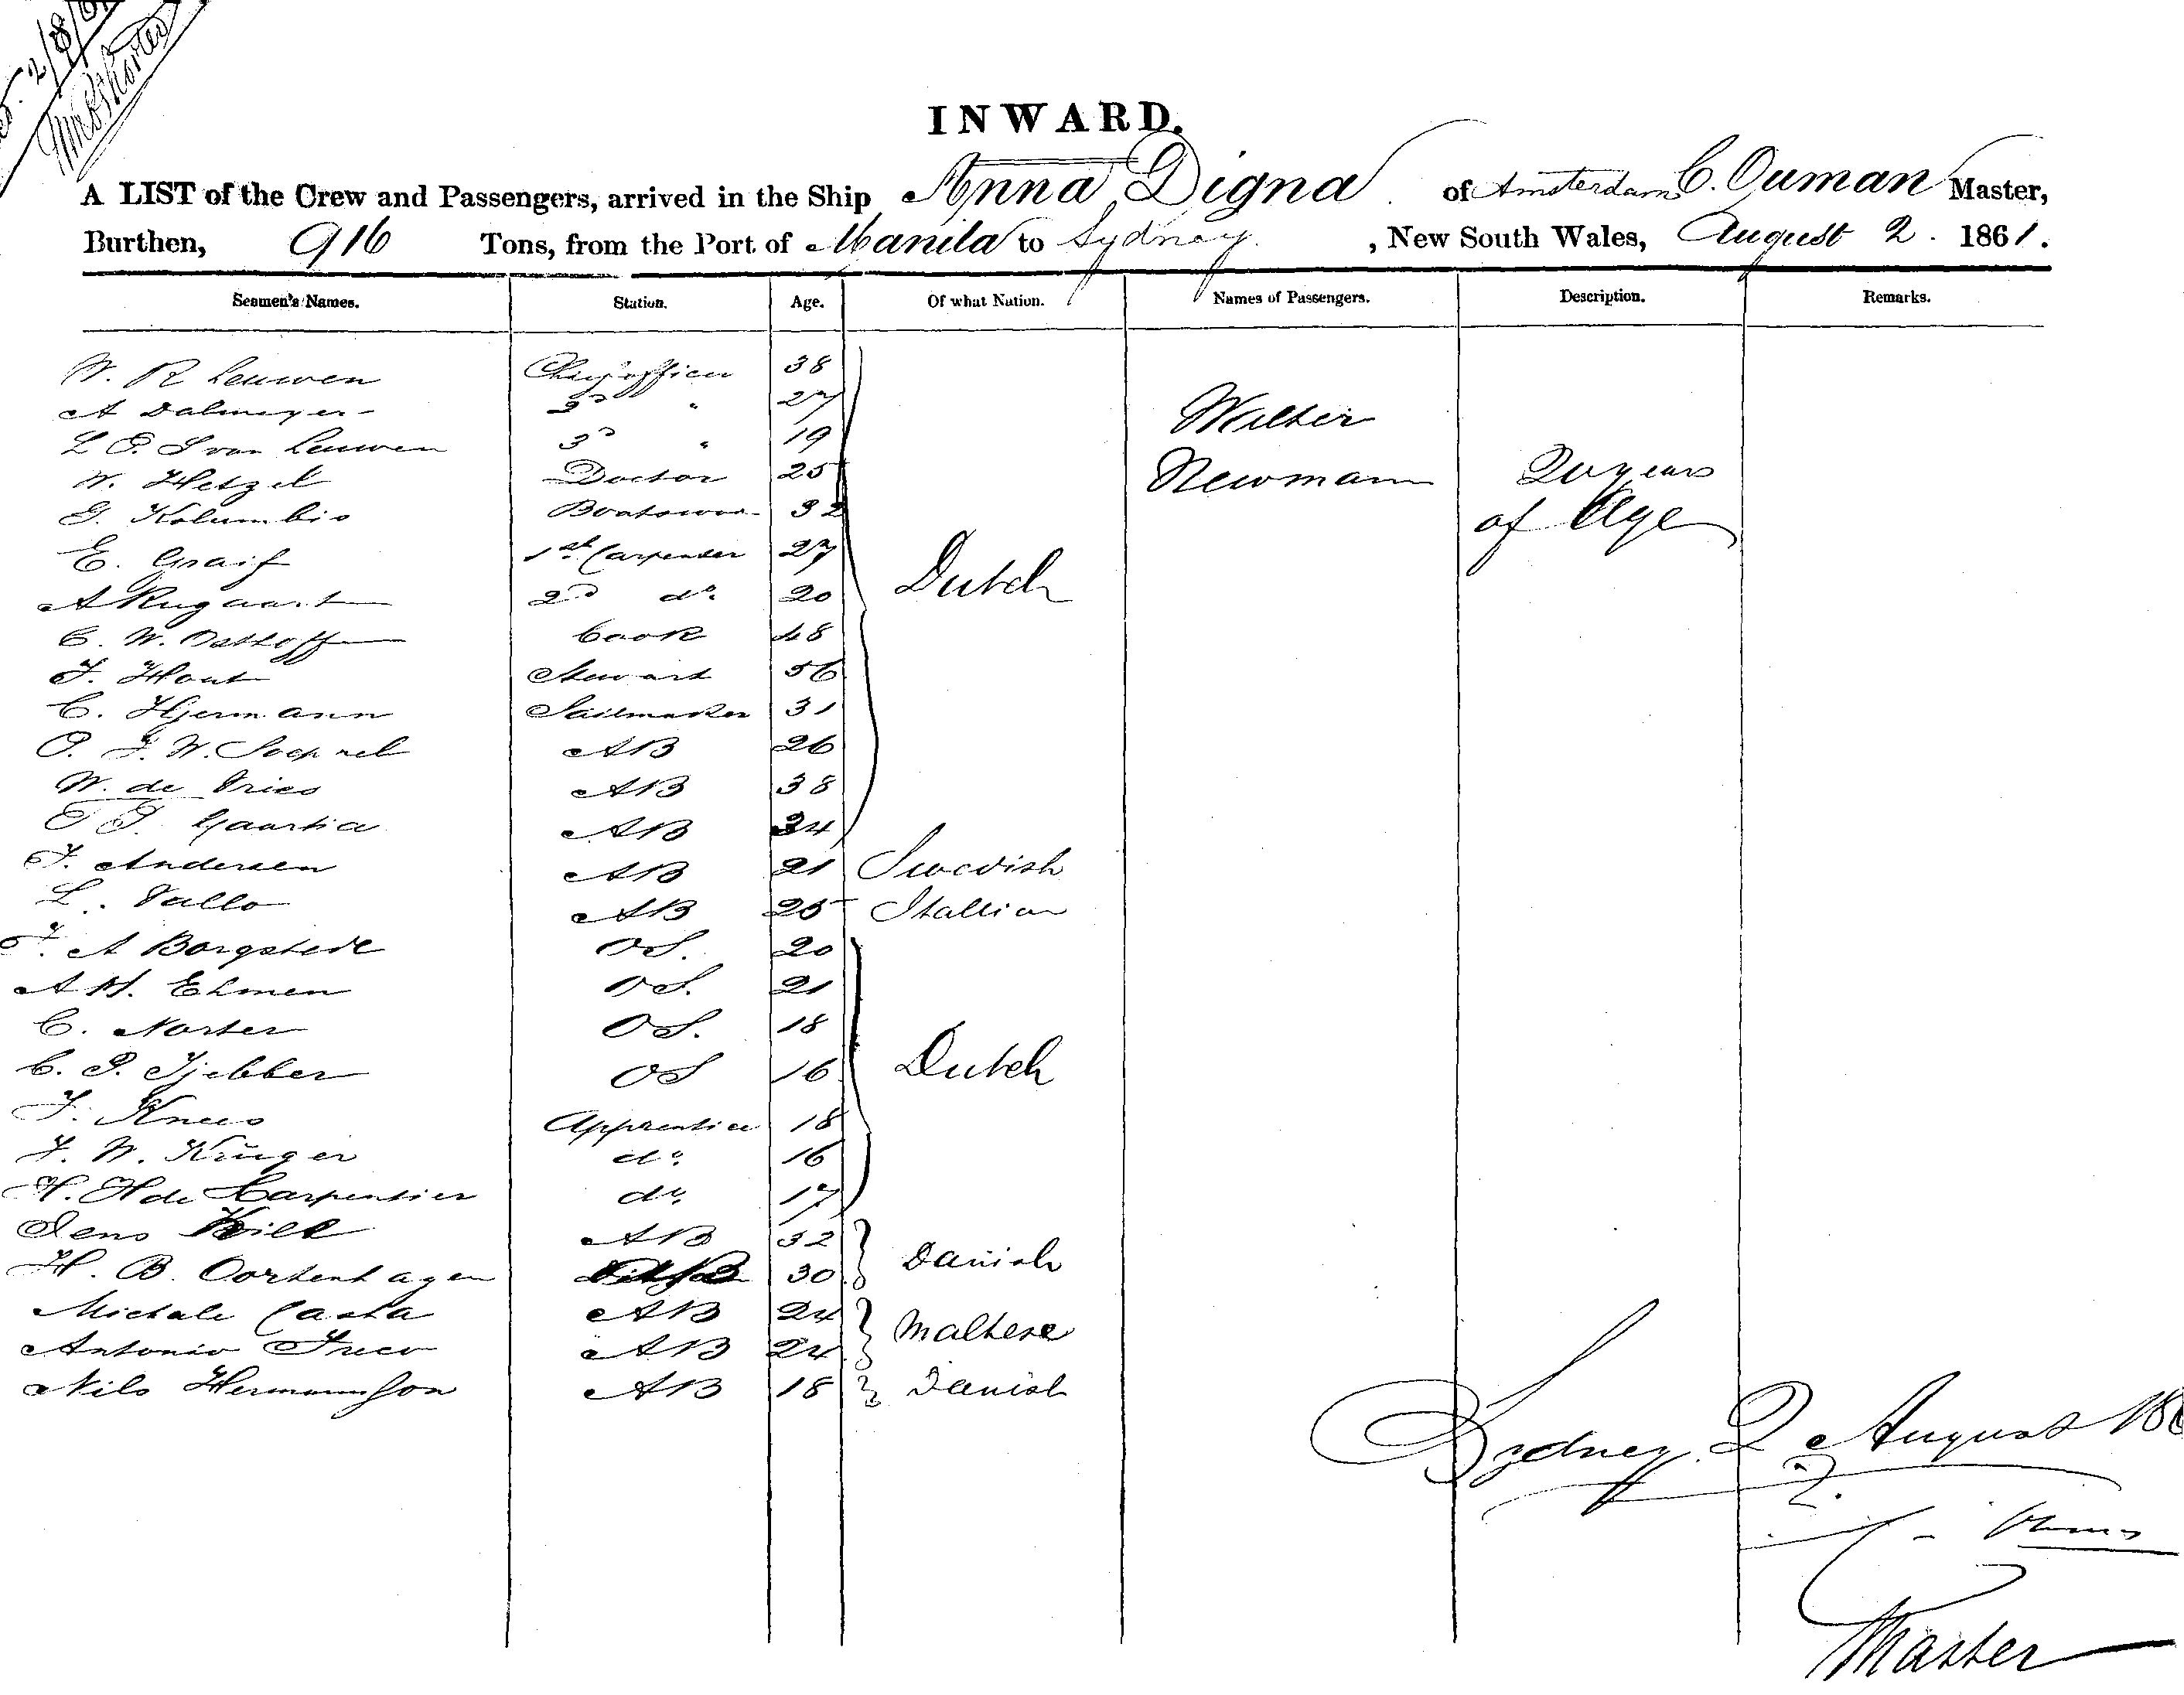 2/8/61
INWARD.
A LIST of the Crew and Passengers, arrived in the Ship Anna Digna of Amsterdam C. Ouman Master,
Burthen, 916 Tons, from the Port of Manila to Sydney , New South Wales, August 2. 1861.
Seamen's Names. Station. Age. Of what Nation. Names of Passengers. Description. Remarks.
W. R Leuwen Chief officer 38
A Dalmeyer 2D " 27
L E. S van Leuwen 3D " 19
W. Hetzel Doctor 25
G. Kolumbio Boatswan 32
E. Graif 1st Carpenter 27
A Rugaart 2D do. 20
C. W. Osthoff Cook 48
J. Hout Stewart 56
C. Hjermann Sailmaker 31
O. J. W. AB 26
W. de Vries AB 38
AB 24
Dutch
Walter
Newmann
20 years
of Age
J. Andersen AB 21 Swedish
L. Vallo AB 25 Itallian
J. A Borgstede OS. 20
A H. Ehmen OS. 21
C. Norter OS. 18
C. P. Tjebber OS 16
J. Knees Apprentice 18
J. W. Krüger do. 16
H. H de Carpentier do. 17
Dutch
Jens AB 32
H. B. Oortenhagen 30
Danish
Michale Casha AB 24
Antonio Greco AB 24
Maltese
Nils Hermannson AB 18 Danish
Sydney 2 August 186
Master